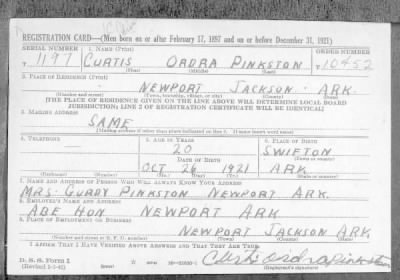 REGISTRATION CARD—(Men born on or after February 17, 1897 and on or before December 31, 1921)
SERIAL NUMBER 1. NAME (Print) ORDER NUMBER
T 1197 CURTIS ORDRA PINKSTON T 10452
(First) (Middle) (Last)
2. PLACE OF RESIDENCE (Print)
NEWPORT JACKSON ARK.
(Number and street) (Town, township, village, or city) (County) (State)
[THE PLACE OF RESIDENCE GIVEN ON THE LINE ABOVE WILL DETERMINE LOCAL BOARD
JURISDICTION; LINE 2 OF REGISTRATION CERTIFICATE WILL BE IDENTICAL]
3. MAILING ADDRESS
SAME
[Mailing address if other than place indicated on line 2. If same insert word same]
4. TELEPHONE 5. AGE IN YEARS 6. PLACE OF BIRTH
20 SWIFTON
DATE OF BIRTH (Town or county)
OCT 26 1921 ARK
(Mo.) (Day) (Yr.) (State or country)
7. NAME AND ADDRESS OF PERSON WHO WILL ALWAYS KNOW YOUR ADDRESS
MRS. GURDY PINKSTON NEWPORT ARK.
8. EMPLOYER'S NAME AND ADDRESS
ABE HON NEWPORT ARK
9. PLACE OF EMPLOYMENT OR BUSINESS
NEWPORT JACKSON ARK
(Number and street or R. F. D. number) (Town) (County) (State)
I AFFIRM THAT I HAVE VERIFIED ABOVE ANSWERS AND THAT THEY ARE TRUE.
D. S. S. Form 1
(Revised 1-1-42) (over) Curtis Ordra Pinkston
(Registrant's signature)